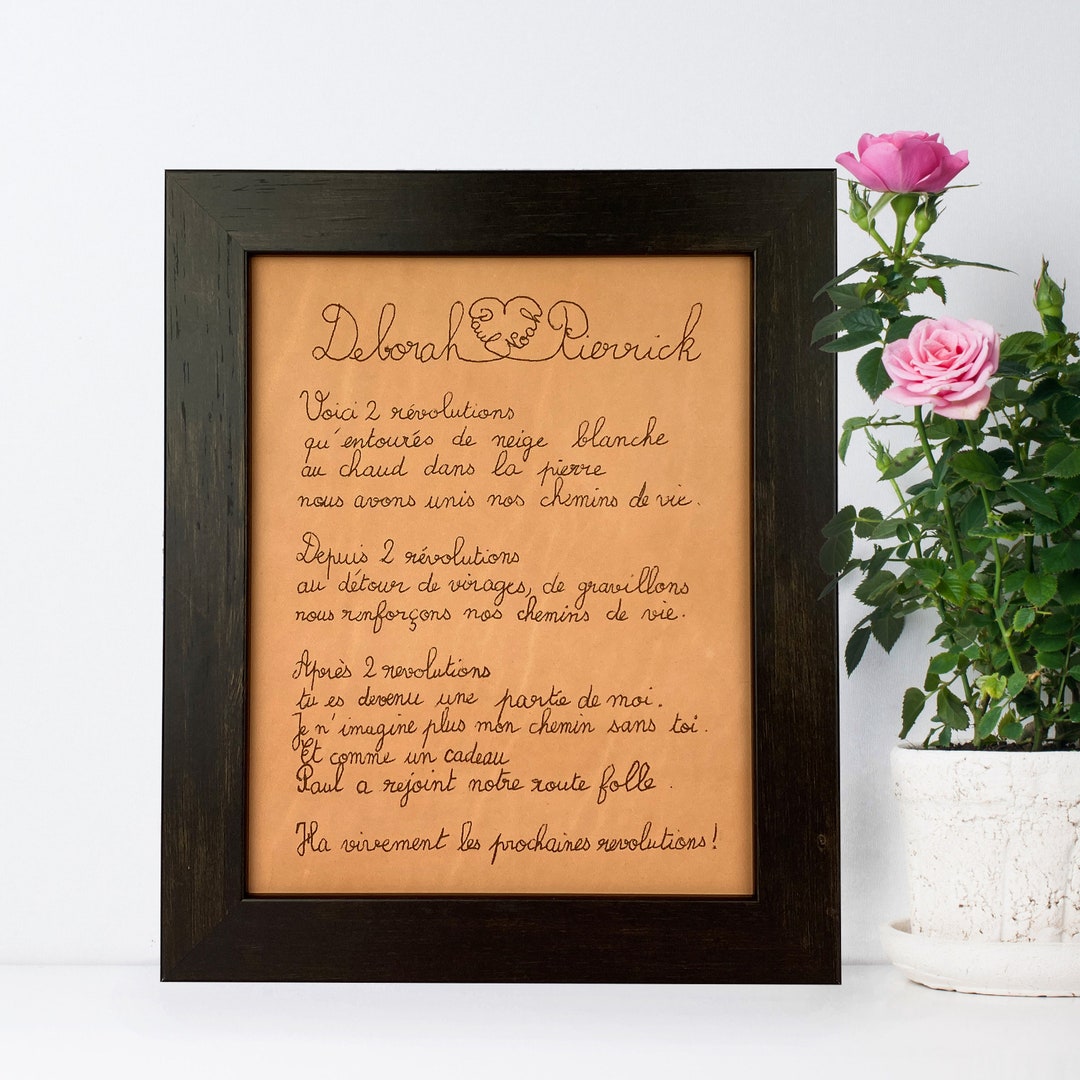 Deborah Paul Noah Pierrick
Voici 2 révolutions
qu'entourés de neige blanche
au chaud dans la pierre
nous avons unis nos chemins de vie.
Depuis 2 révolutions
au détour de virages, de gravillons
nous renforçons nos chemins de vie.
Après 2 revolutions
tu es devenu une partie de moi.
Je n'imagine plus mon chemin sans toi.
Et comme un cadeau
Paul a rejoint notre route folle.
Ha vivement les prochaines revolutions!